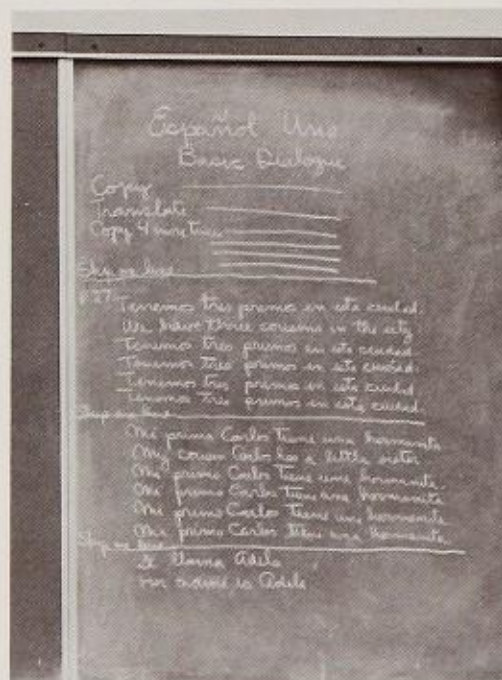 Español Uno
Basic Dialogue
Copy
Translate
Copy 4 more times
Skip one line
p. 27 Tenemos tres primos en esta ciudad.
We have three cousins in the city.
Tenemos tres primos en esta ciudad.
Tenemos tres primos en esta ciudad.
Tenemos tres primos en esta ciudad.
Tenemos tres primos en esta ciudad.
Skip one line
Mi primo Carlos tiene una hermanita.
My cousin Carlos has a little sister.
Mi primo Carlos tiene una hermanita.
Mi primo Carlos tiene una hermanita.
Mi primo Carlos tiene una hermanita.
Mi primo Carlos tiene una hermanita.
Skip one line
Se llama Adela
Her name is Adele